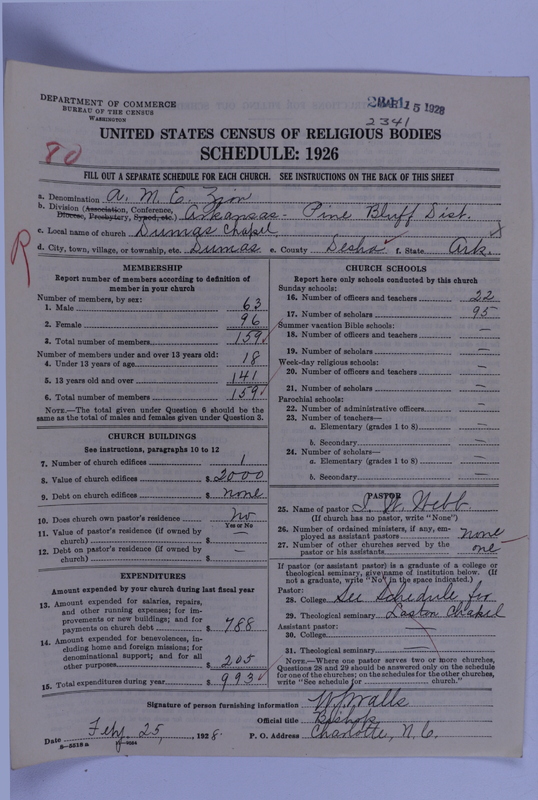 DEPARTMENT OF COMMERCE
BUREAU OF THE CENSUS
WASHINGTON
MAR 15 1928
2341
UNITED STATES CENSUS OF RELIGIOUS BODIES
SCHEDULE: 1926
80
FILL OUT A SEPARATE SCHEDULE FOR EACH CHURCH. SEE INSTRUCTIONS ON THE BACK OF THIS SHEET
a. Denomination A. M. E. Zion
b. Division (Association, Conference, Diocese, Presbytery, Synod, etc.) Arkansas - Pine Bluff Dist.
c. Local name of church Dumas Chapel
d. City, town, village, or township, etc. Dumas e. County Desha f. State Ark.
R
MEMBERSHIP
Report number of members according to definition of member in your church
Number of members, by sex:
1. Male 63
2. Female 96
3. Total number of members 159
Number of members under and over 13 years old:
4. Under 13 years of age 18
5. 13 years old and over 141
6. Total number of members 159
NOTE.—The total given under Question 6 should be the same as the total of males and females given under Question 3.
CHURCH BUILDINGS
See instructions, paragraphs 10 to 12
7. Number of church edifices 1
8. Value of church edifices $ 2000
9. Debt on church edifices $ none
10. Does church own pastor's residence No
Yes or No
11. Value of pastor's residence (if owned by church) $ —
12. Debt on pastor's residence (if owned by church) $ —
EXPENDITURES
Amount expended by your church during last fiscal year
13. Amount expended for salaries, repairs, and other running expenses; for improvements or new buildings; and for payments on church debt $ 788
14. Amount expended for benevolences, including home and foreign missions; for denominational support; and for all other purposes $ 205
15. Total expenditures during year $ 993
CHURCH SCHOOLS
Report here only schools conducted by this church
Sunday schools:
16. Number of officers and teachers 22
17. Number of scholars 95
Summer vacation Bible schools:
18. Number of officers and teachers —
19. Number of scholars —
Week-day religious schools:
20. Number of officers and teachers —
21. Number of scholars —
Parochial schools:
22. Number of administrative officers —
23. Number of teachers—
a. Elementary (grades 1 to 8) —
b. Secondary —
24. Number of scholars—
a. Elementary (grades 1 to 8) —
b. Secondary —
PASTOR
25. Name of pastor W. Webb
(If church has no pastor, write "None")
26. Number of ordained ministers, if any, employed as assistant pastors none
27. Number of other churches served by the pastor or his assistants one
If pastor (or assistant pastor) is a graduate of a college or theological seminary, give name of institution below. (If not a graduate, write "No" in the space indicated.)
Pastor:
28. College See Schedule for
29. Theological seminary Laston Chapel
Assistant pastor:
30. College —
31. Theological seminary —
NOTE.—Where one pastor serves two or more churches, Questions 28 and 29 should be answered only on the schedule for one of the churches; on the schedules for the other churches, write "See schedule for church."
Signature of person furnishing information W J Walls
Official title Bishop
Date Feby. 25, 1928. P. O. Address Charlotte, N. C.